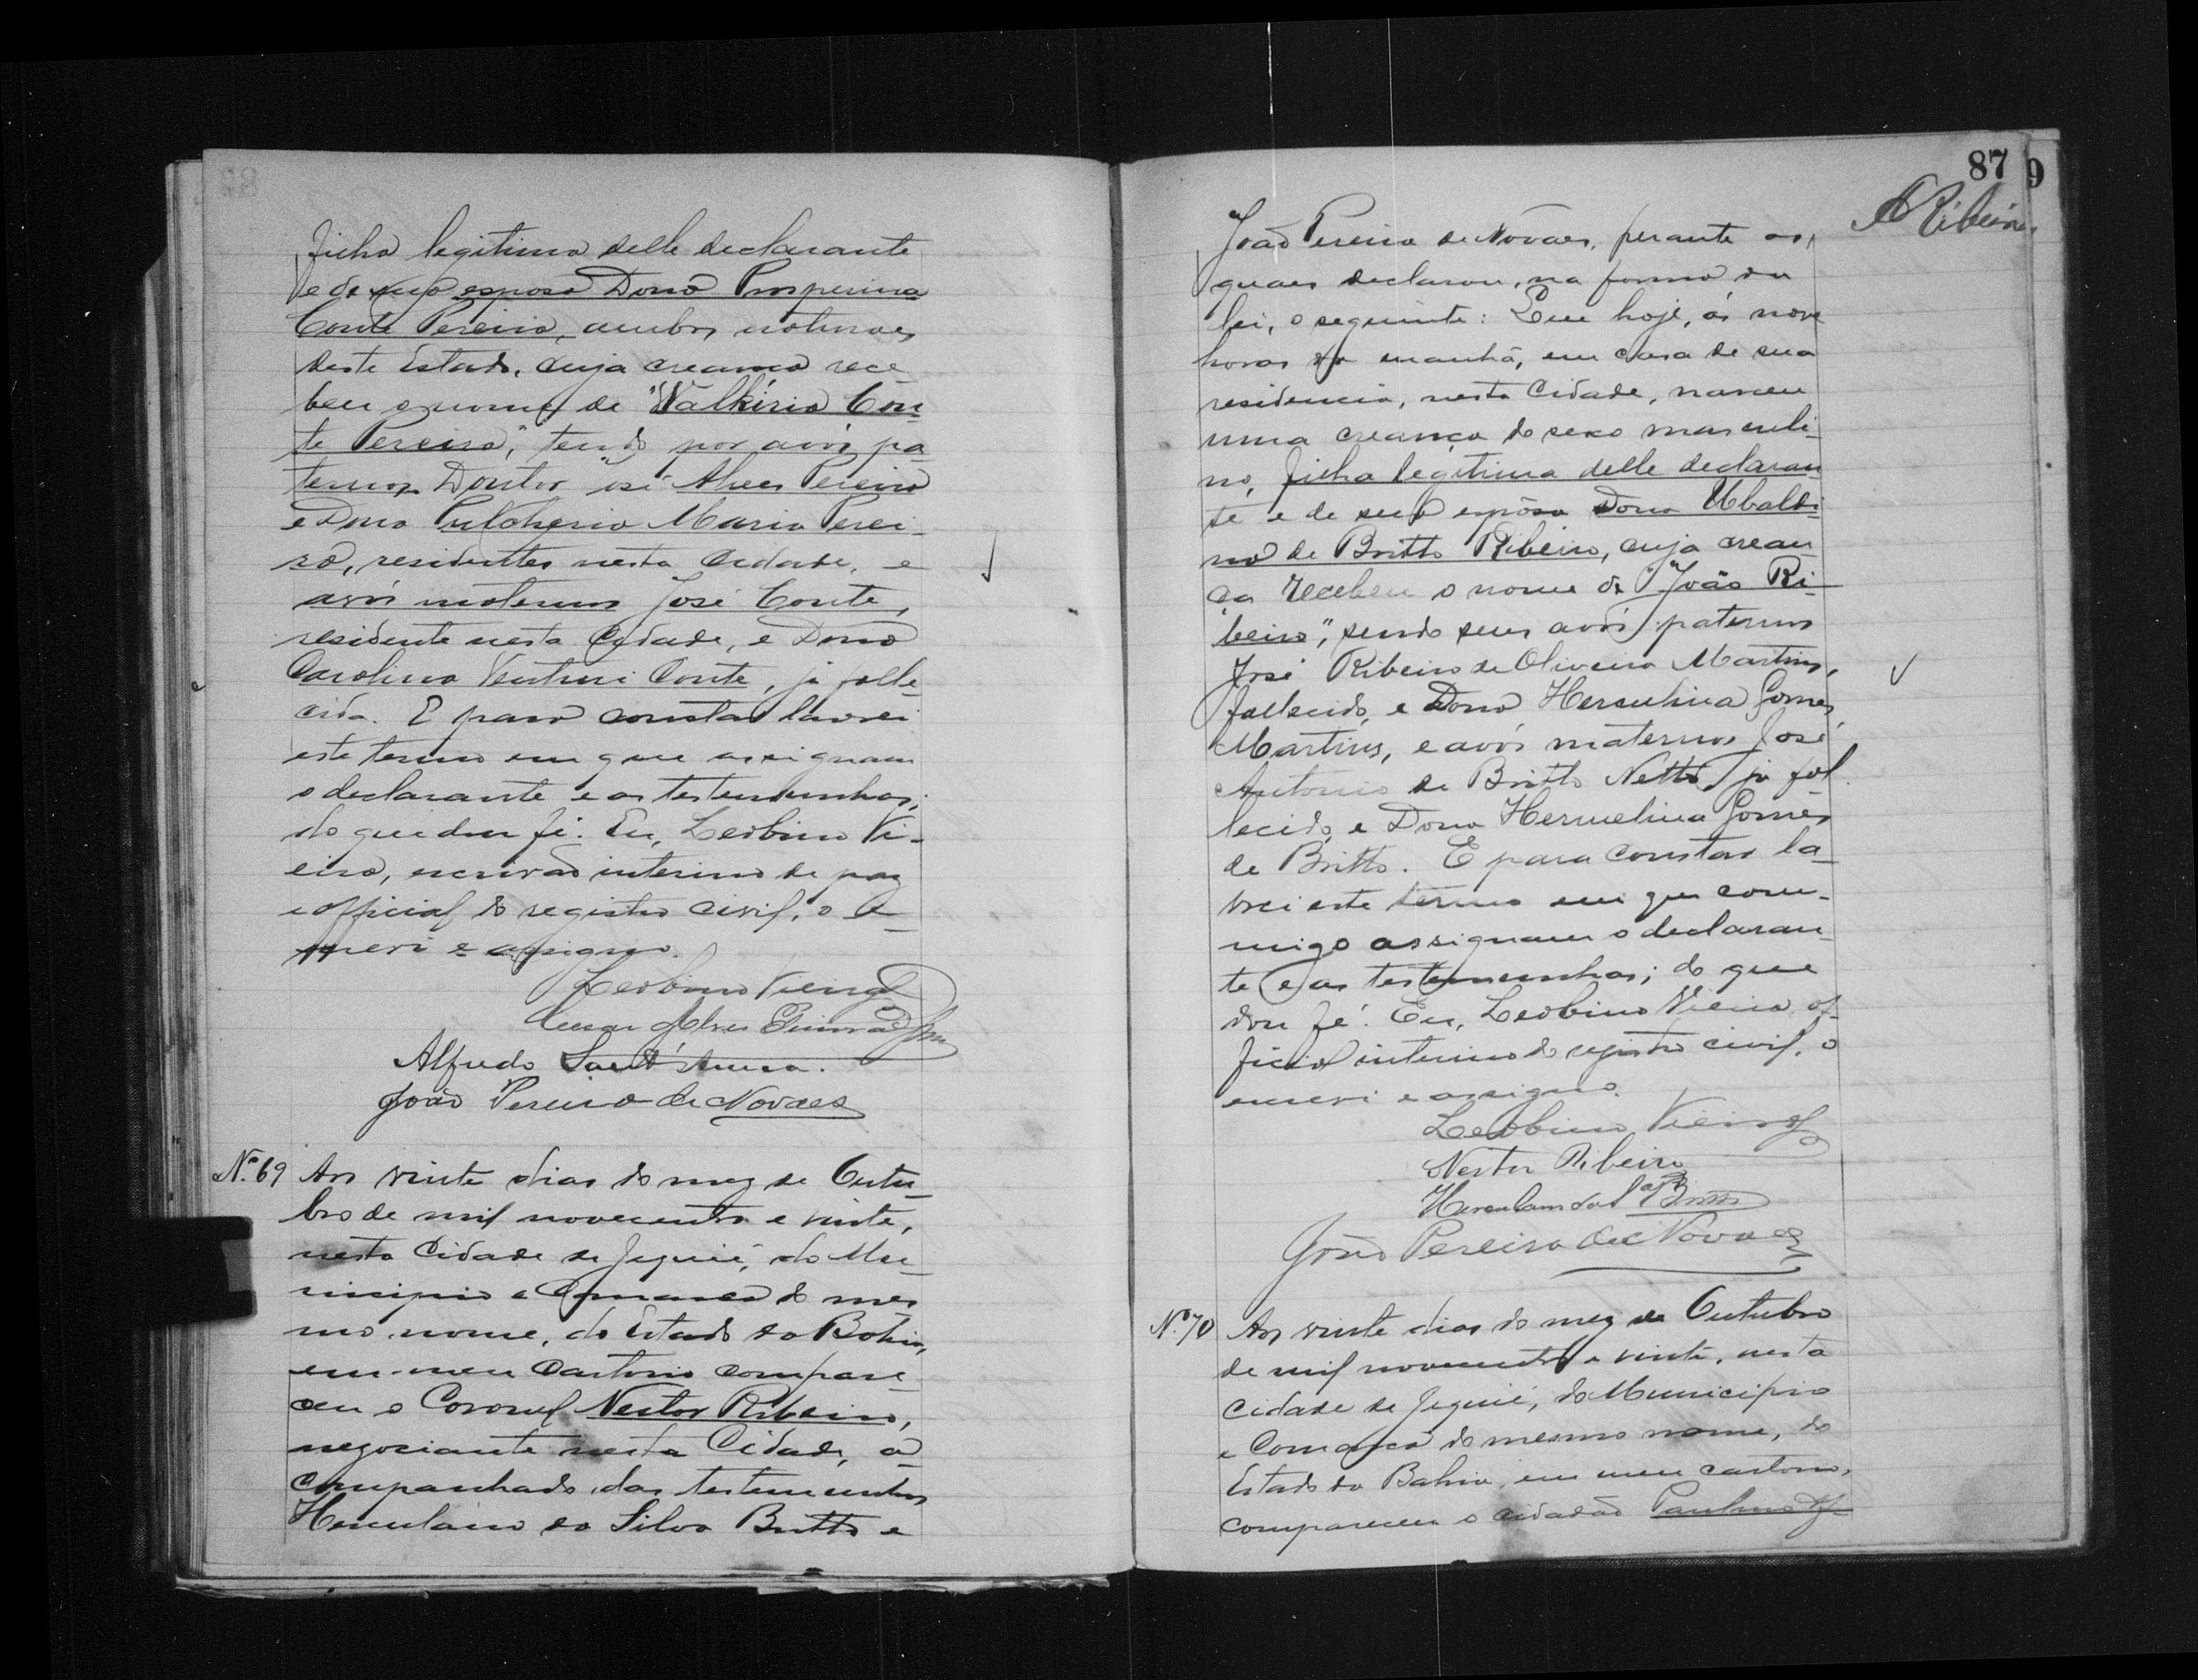 filha legitima delle declarante
e de sua esposa Dona Prosperina
Conte Pereira, ambos naturaes
deste Estado, cuja creança rece-
beu o nome de "Walkiria Con-
te Pereira", tendo por avós pa-
ternos Doutor José Alves Pereira
e Dona Pulcheria Maria Perei-
ra, residentes nesta Cidade, e
avós maternos José Conte,
residente nesta Cidade, e Dona
Carolina Venturi Conte, já falle-
cida. E para constar lavrei
este termo em que assignam
o declarante e as testemunhas;
do que dou fé. Eu, Leobino Vi-
eira, escrivão interino de paz
e official do registro civil, o es-
crevi e assigno.
Leobino Vieira
Cesar Alves
Alfredo Sant'Anna.
João Pereira de Novaes
Nº 69 Aos vinte dias do mez de Outu-
bro de mil novecentos e vinte,
nesta Cidade de Jequié, do Mu-
nicipio e Comarca do mes-
mo nome, do Estado da Bahia,
em meu Cartorio compare-
ceu o Coronel Nestor Ribeiro,
negociante nesta Cidade, a-
companhado das testemunhas
Herculano da Silva Britto e
87 9
A Ribeiro
João Pereira de Novaes, perante as
quaes declarou, na forma da
lei, o seguinte: Que hoje, ás nove
horas da manhã, em casa de sua
residencia, nesta Cidade, nasceu
uma creança do sexo masculi-
no, filha legitima delle declaran-
te e de sua espôsa Dona Ubaldi-
na de Britto Ribeiro, cuja crean-
ça recebeu o nome de "João Ri-
beiro", sendo seus avós paternos
José Ribeiro de Oliveira Martins,
fallecido, e Dona Herculina Gomes
Martins, e avós maternos José
Antonio de Britto Netto, já fal-
lecido, e Dona Hermelina Gomes
de Britto. E para constar la-
vrei este termo em que com-
migo assignam o declaran-
te e as testemunhas; do que
dou fé. Eu, Leobino Vieira, of-
ficial interino do registro civil, o
escrevi e assigno.
Leobino Vieira
Nestor Ribeiro
Herculano da Sª Britto
João Pereira de Novaes
Nº 70 Aos vinte dias do mez de Outubro
de mil novecentos e vinte, nesta
Cidade de Jequié, do Municipio
e Comarca do mesmo nome, do
Estado da Bahia, em meu cartorio,
compareceu o cidadão Paulino